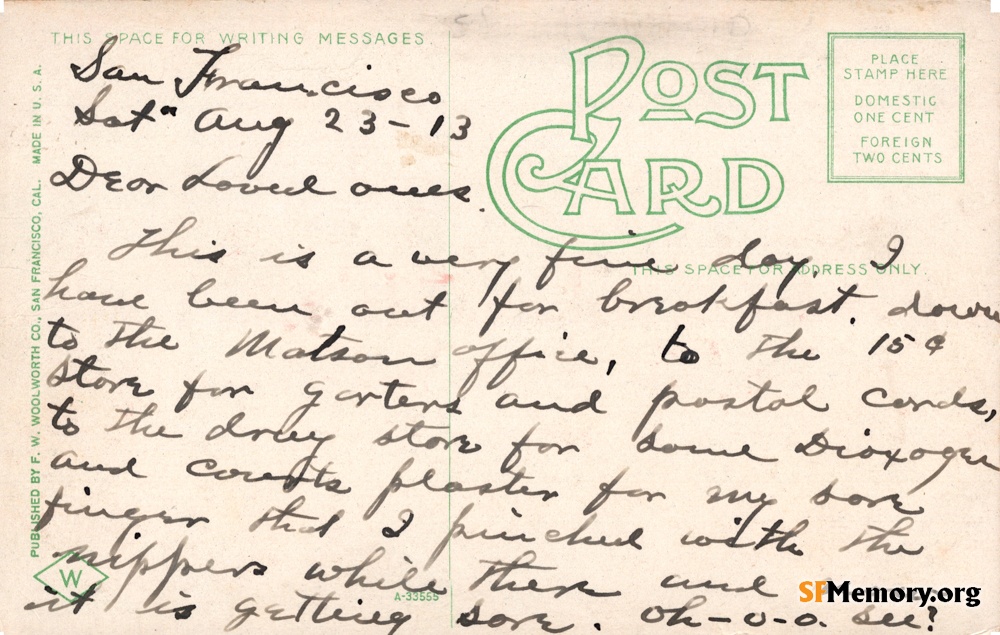 THIS SPACE FOR WRITING MESSAGES
San Francisco
Sat" Aug 23-13
Dear Loved ones.
This is a very fine day, I
have been out for breakfast. down
to the Matson office, to the 15¢
store for garters and postal cards,
to the drug store for some Dioxogen
and courts plaster for my sore
finger that I pinched with the
nippers while there and
it is getting sore. oh-o-o. see?
POST CARD
PLACE
STAMP HERE
DOMESTIC
ONE CENT
FOREIGN
TWO CENTS
THIS SPACE FOR ADDRESS ONLY.
PUBLISHED BY F. W. WOOLWORTH CO., SAN FRANCISCO, CAL. MADE IN U. S. A.
W
A-33555
SFMemory.org